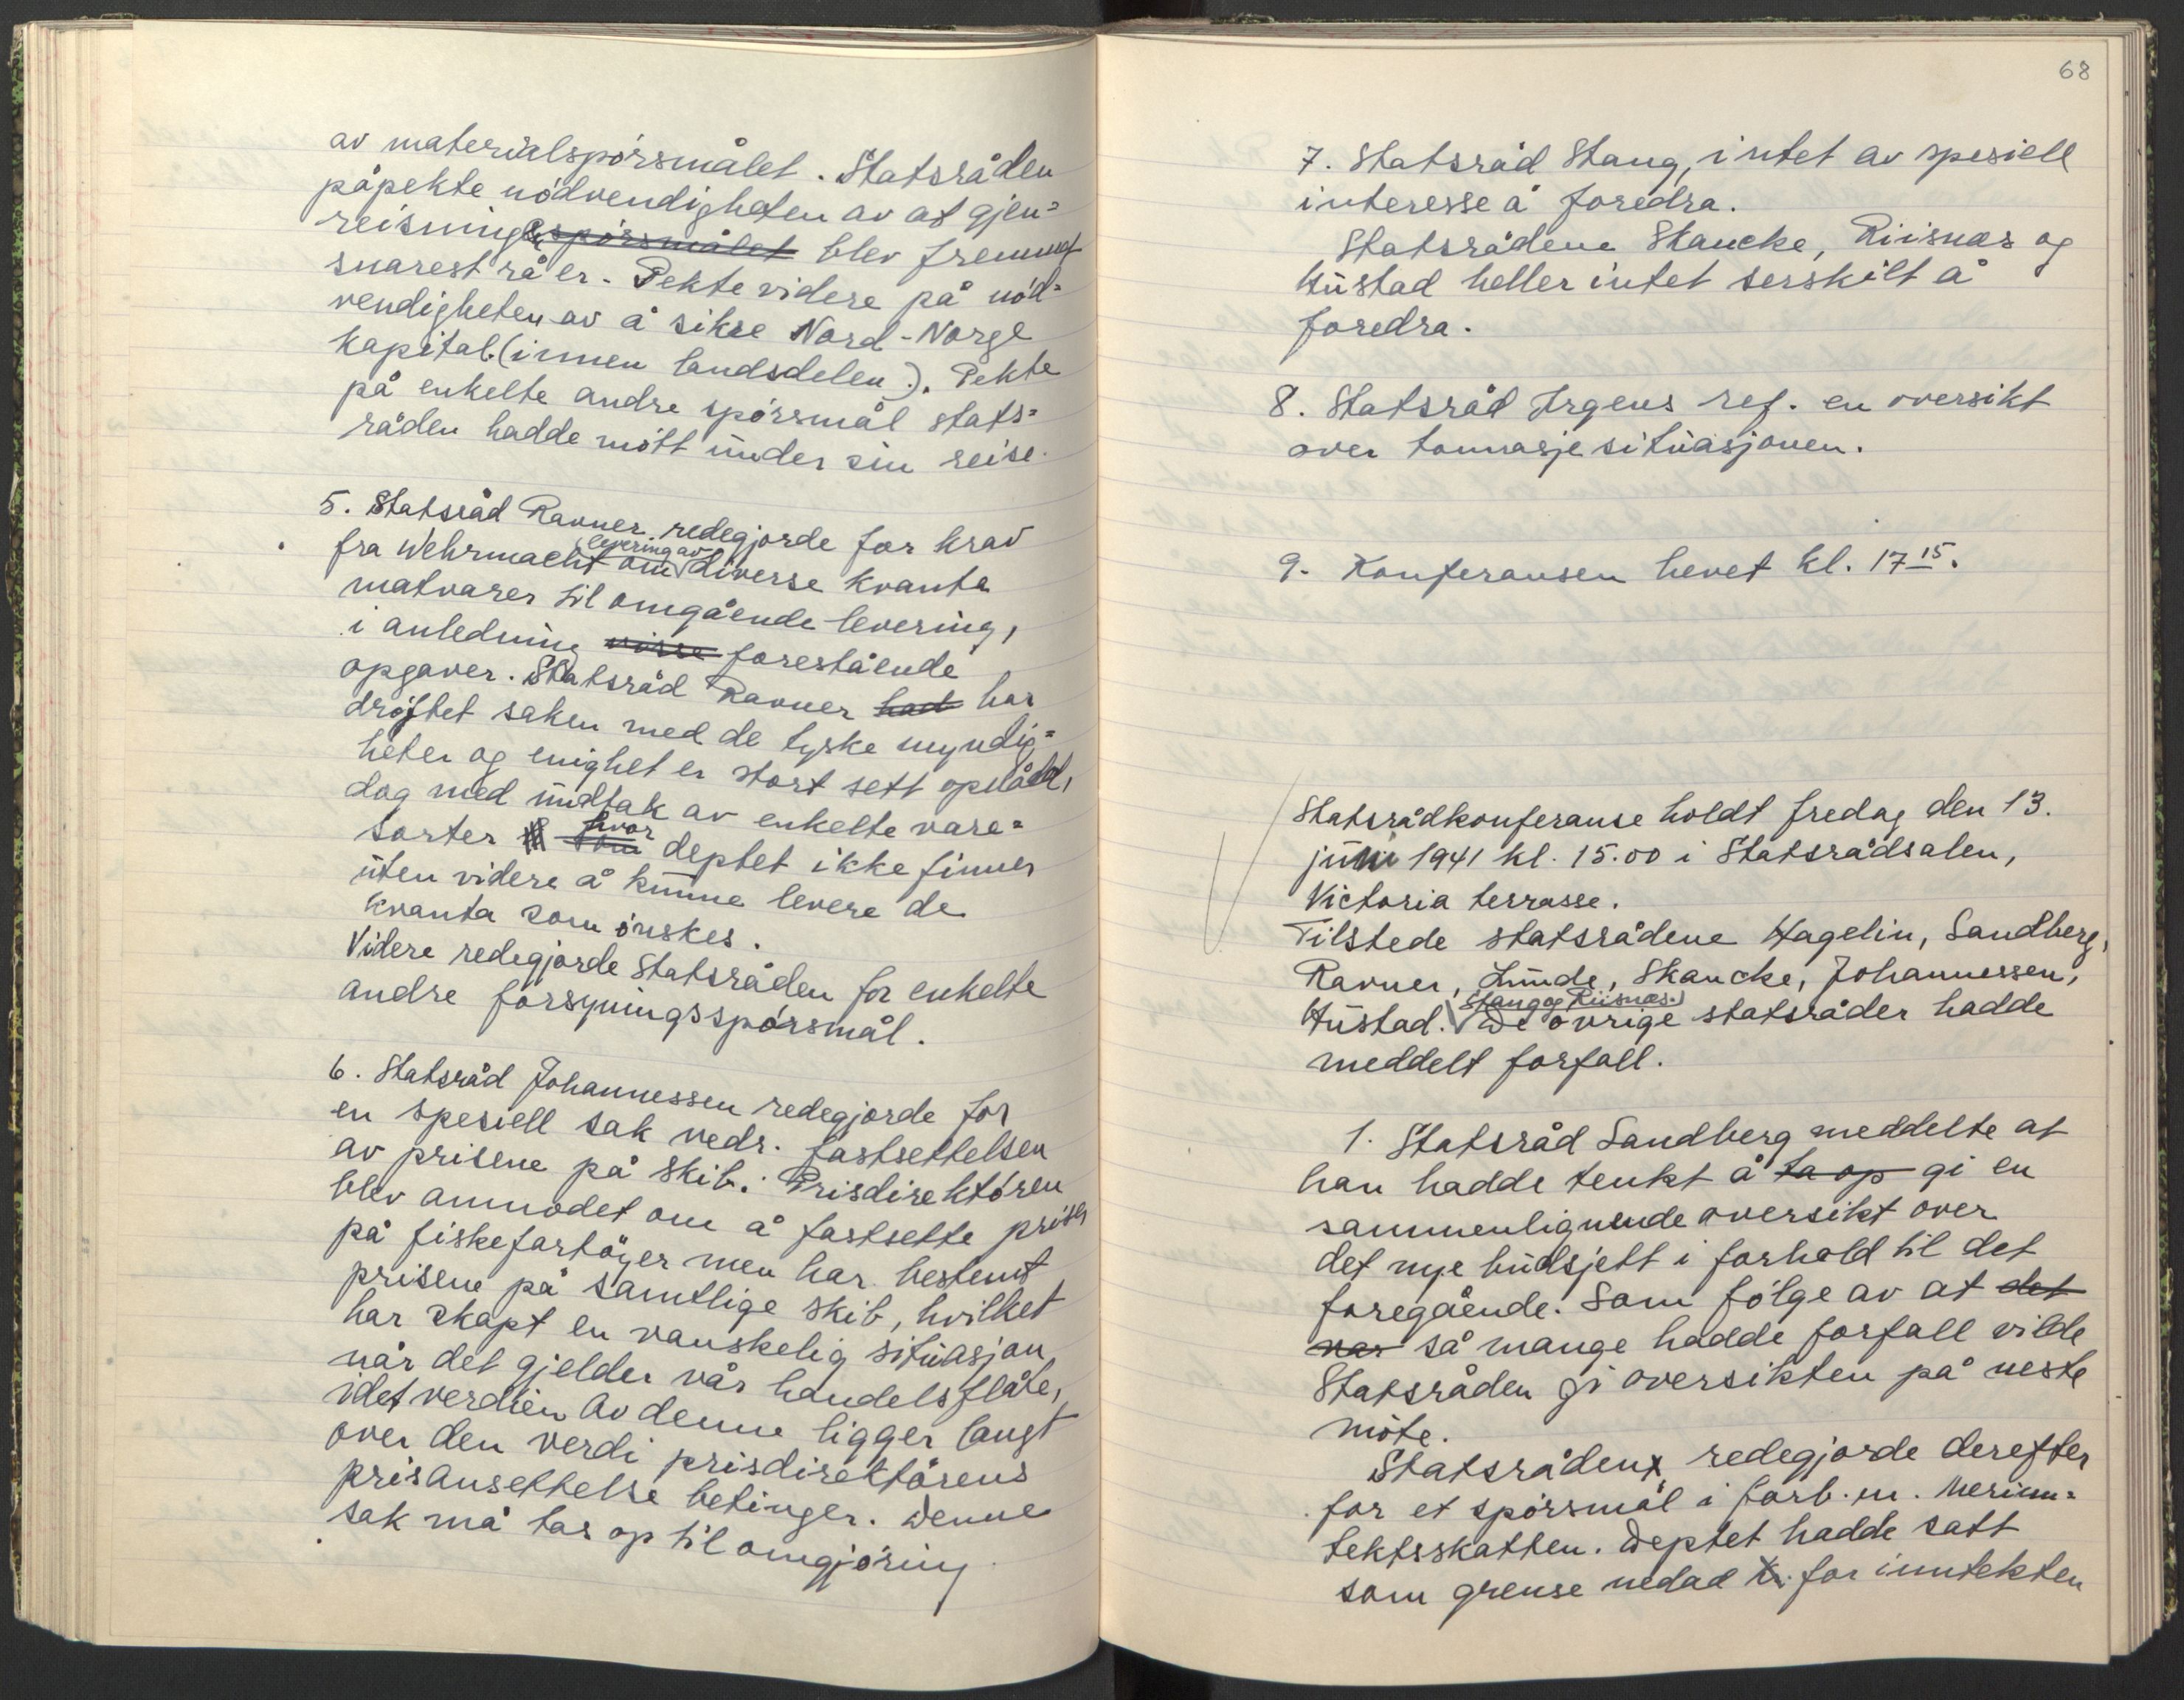 av materialspørsmålet. Statsråden
påpekte nødvendigheten av at gjen=
reisningsspørsmålet blev fremmet
snarest råer. Pekte videre på nød=
vendigheten av å sikre Nord-Norge
kapital (innen landsdelen). Pekte
på enkelte andre spørsmål stats=
råden hadde møtt under sin reise.
5. Statsråd Ravner redegjorde for krav
levering av
fra Wehrmacht om diverse kvanta
matvarer til omgående levering,
i anledning visse forestående
opgaver. Statsråd Ravner had har
drøftet saken med de tyske myndig=
heter og enighet er stort sett opnådd,
dog med undtak av enkelte vare=
hvor
sorter som deptet ikke finner
uten videre å kunne levere de
kvanta som ønskes.
Videre redegjorde Statsråden for enkelte
andre forsyningsspørsmål.
6. Statsråd Johannessen redegjorde for
en spesiell sak vedr. fastsettelsen
av prisene på skib. Prisdirektøren
blev anmodet om å fastsette priser
på fiskefartøyer men har bestemt
prisene på samtlige skib, hvilket
har skapt en vanskelig situasjon
når det gjelder vår handelsflåte,
idet verdien av denne ligger langt
over den verdi prisdirektørens
prisansettelse betinger. Denne
sak må tas op til omgjøring.
68
7. Statsråd Stang, intet av spesiell
interesse å foredra.
Statsrådene Skancke, Riisnæs og
Hustad heller intet serskilt å
foredra.
8. Statsråd Irgens ref. en oversikt
over tonnasjesituasjonen.
9. Konferansen hevet kl. 17 15.
Statsrådkonferanse holdt fredag den 13.
juni 1941 kl. 15.00 i Statsrådsalen,
Victoria terrasse.
Tilstede statsrådene Hagelin, Sandberg,
Ravner, Lunde, Skancke, Johannessen,
Stang og Riisnæs.
Hustad. De øvrige statsråder hadde
meddelt forfall.
1. Statsråd Sandberg meddelte at
han hadde tenkt å ta op gi en
sammenlignende oversikt over
det nye budsjett i forhold til det
foregående. Som følge av at det
var så mange hadde forfall vilde
Statsråden gi oversikten på neste
møte.
Statsråden redegjorde derefter
for et spørsmål i forb. m. Merinn=
tektsskatten. Deptet hadde satt
som grense nedad for inntekten